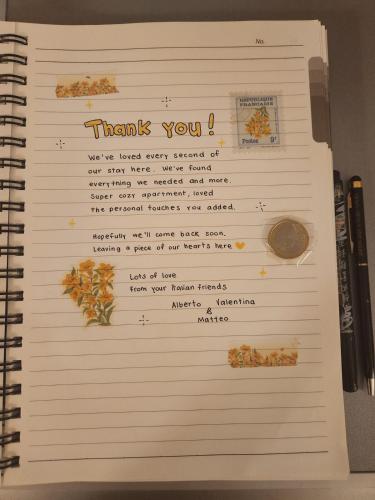 No.
REPUBLIQUE
FRANCAISE
Postes 9F
Thank you!
We've loved every second of
our stay here. We've found
everything we needed and more.
Super cozy apartment, loved
the personal touches you added.
Hopefully we'll come back soon.
Leaving a piece of our hearts here
Lots of love
from your Italian friends
Alberto Valentina
&
Matteo